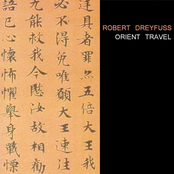 ROBERT DREYFUSS
ORIENT TRAVEL
者 五倍大王我
必不得免唯願大王速
我今愍汝故相勸
語已心懷怖懼舉身戰慄